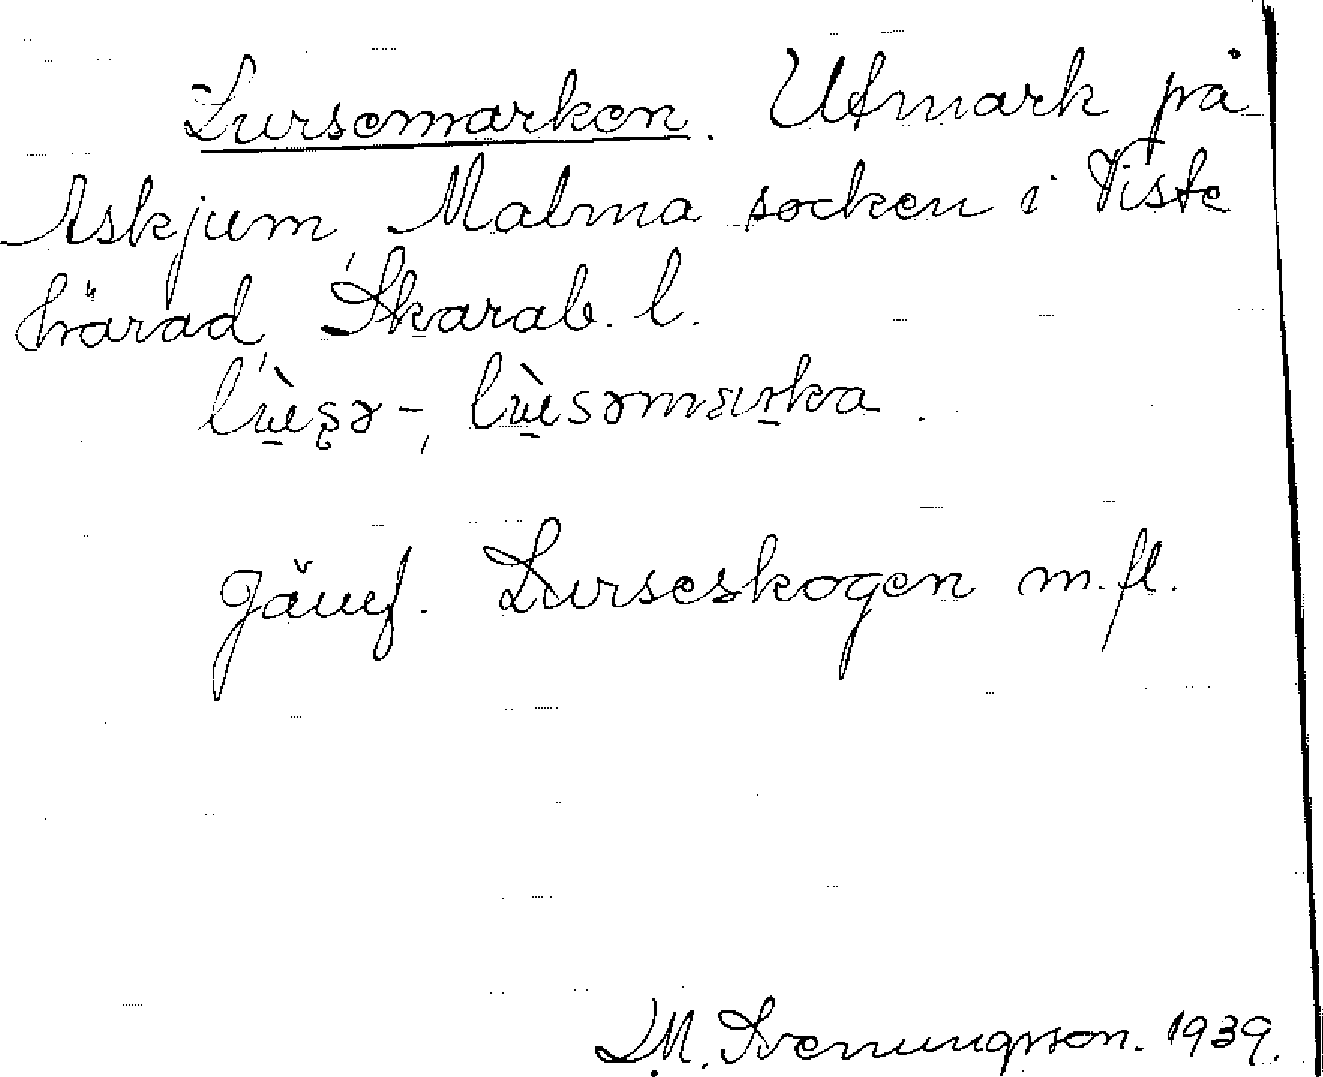 Lursemarken. Utmark på
Askjum, Malma socken i Viste
härad, Skarab. l.
jämf. Lurseskogen m.fl.
L.M. Svenungsson. 1939.